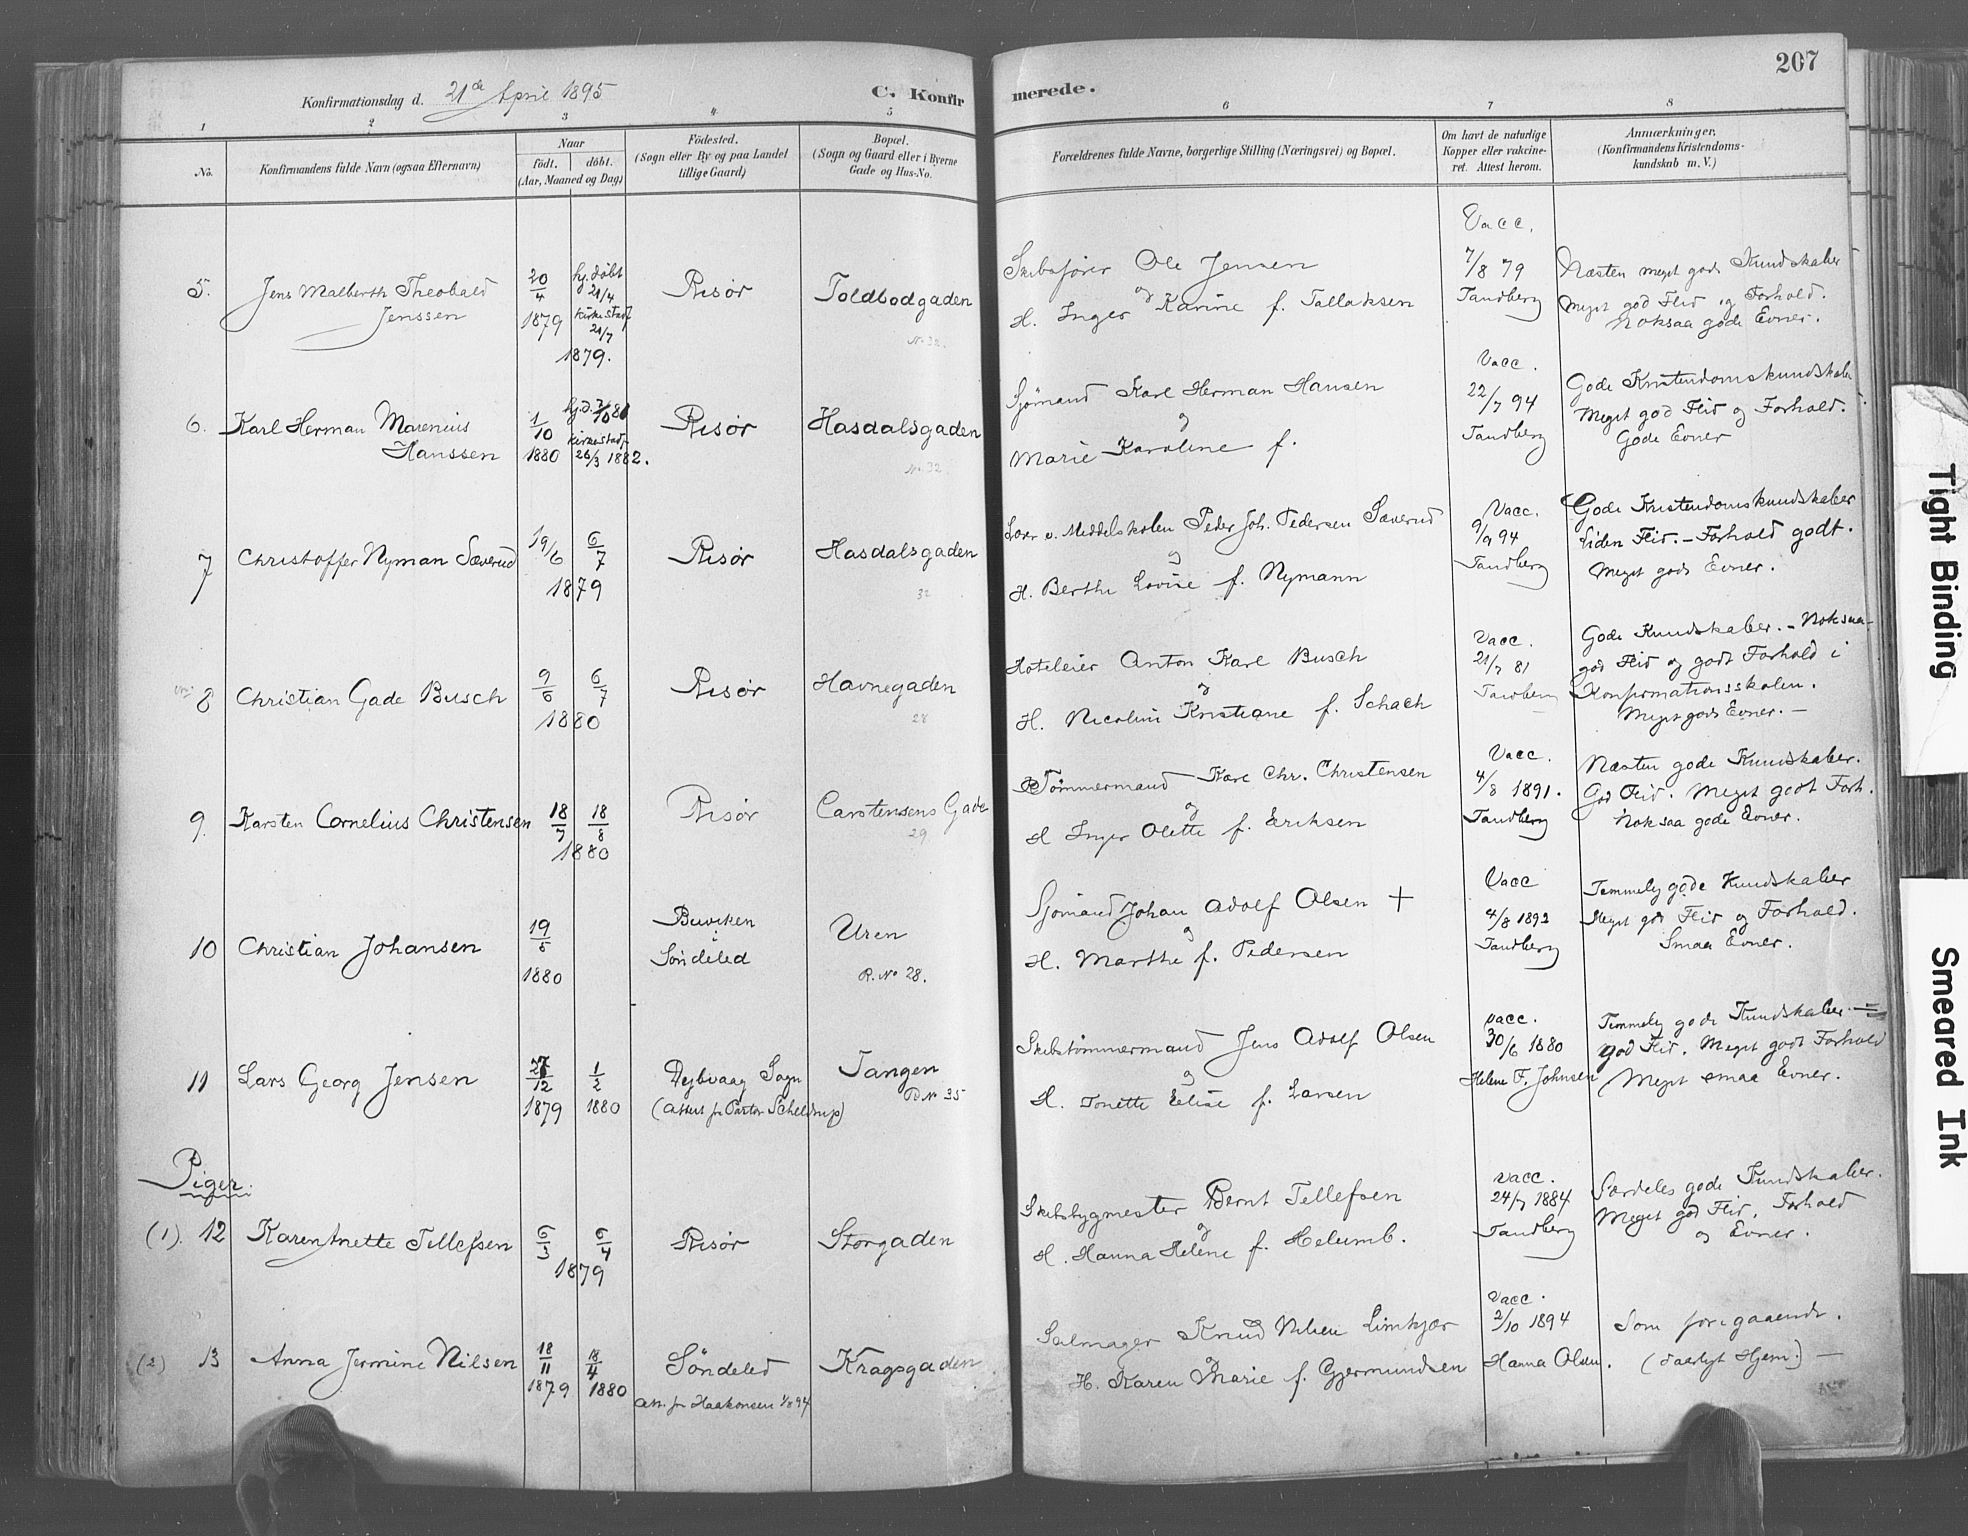 207
Konfirmationsdag d. 21de April 1895
C. Konfir merede.
1 2 3 4 5 6 7 8
No.
Konfirmandens fulde Navn (ogsaa Efternavn)
Naar
født. døbt.
(Aar, Maaned og Dag)
Födested.
(Sogn eller By og paa Landet
tillige Gaard)
Bopæl.
(Sogn og Gaard eller i Byerne
Gade og Hus-No.
Forældrenes fulde Navne, borgerlige Stilling (Næringsvei) og Bopæl.
Om havt de naturlige
Kopper eller vakcine-
ret. Attest herom.
Anmærkninger,
(Konfirmandens Kristendoms-
kundskab m. V.)
5. Jens Malberth Theobald
Jenssen
20/4 1879
hj. døbt
21/4
kirkestadf
1879.
Risør
Toldbodgaden
No 32.
Skibsfører Ole Jensen
og
H. Inger Karine f. Tallaksen
Vacc.
7/8 79
Tandberg
Næsten meget gode Kundskaber
Meget god Flid og Forhold.
Noksaa gode Evner.
6. Karl Herman Marenius
Hanssen
1/10 1880
kirkestadf.
26/3 1882.
Risør
Hasdalsgaden
No 32
Sjømand Karl Herman Hansen
og
Marie Karoline f.
Vacc.
22/7 94
Tandberg
Gode Kristendomskundskaber
Meget god Flid og Forhold.
Gode Evner
7 Christoffer Nyman Sæverud
19/6 6/7
1879
Risør
Hasdalsgaden
32
Lærer v. Middelskolen Peder Joh. Pedersen Sæverud
og
H. Berthe Lovise f. Nymann
Vacc.
9/9 94
Tandberg
Gode Kristendomskundskaber
Liden Flid. - Forhold godt.
Meget gode Evner.
8 Christian Gade Busch
9/6 6/7
1880
Risør
Havnegaden
28
Hoteleier Anton Karl Busch
og
H. Nicolini Kristiane f. Schach
Vacc.
21/7 81
Tandberg
Gode Kundskaber. - Noksaa
god Flid og godt Forhold i
Konfirmationsskolen.
Meget gode Evner. -
9. Karsten Cornelius Christensen
18/7 18/8
1880
Risør
Carstensens Gade
29.
Tømmermand Karl Chr. Christensen
og
H Inger Olette f. Eriksen
Vacc.
4/8 1891.
Tandberg
Næsten gode Kundskaber.
God Flid. Meget godt Forh.
Noksaa gode Evner.
10 Christian Johansen
19/5
1880
Buviken
i
Søndeled
Uren
R. No 28.
Sjømand Johan Adolf Olsen +
og
H. Marthe f. Pedersen
Vacc
4/8 1892
Tandberg
Temmelig gode Kundskaber
Meget god Flid og Forhold.
Smaa Evner.
11 Lars Georg Jensen
27/12 1/2
1879 1880
Dybvaag Sogn
(Attest fr Pastor Scheldrup)
Tangen
No 35
Skibstømmermand Jens Adolf Olsen
og
H. Tonette Elise f. Larsen
Vacc.
30/6 1880
Helene F. Johnsen
Temmelig gode Kundskaber. -
god Flid. Meget godt Forhold
Meget smaa Evner.
Piger.
(1). 12 Karen Anette Tellefsen
6/3 6/4
1879
Risør
Storgaden
Skibsbygmester Bernt Tellefsen
og
H. Hanna Helene f. Helumb.
Vacc.
24/7 1884
Tandberg
Særdeles gode Kundskaber.
Meget god Flid, Forhold
og Evner.
(2) 13 Anna Jermine Nilsen
18/11 18/4
1879 1880
Söndeled
Att. fr Haakonsen 1/8 94
Kragsgaden
Salmager Knud Nilsen Limkjær
og
H. Karen Marie f. Gjermundsen
Vacc.
2/10 1894
Hanna Olsen.
Som foregaaende.
(daarligt Hjem.) -
Tight Binding
Smeared Ink